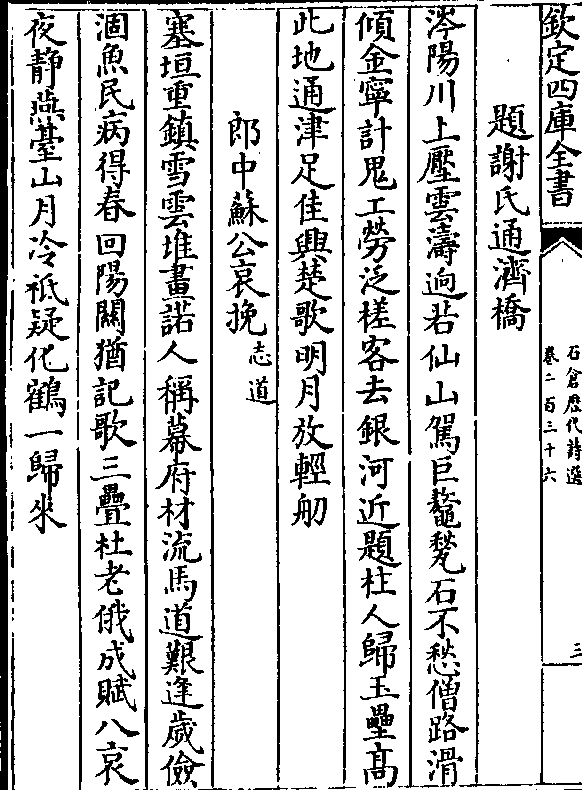 欽定四庫全書
石倉歷代詩選
卷二百三十六
三
題謝氏通濟橋
涔陽川上壓雲濤逈若仙山駕巨鼇甃石不愁僧路滑
傾金寧計鬼工勞泛槎客去銀河近題柱人歸玉壘高
此地通津足佳興楚歌明月放輕舠
郎中蘇公哀挽志道
塞垣重鎮雪雲堆畫諾人稱幕府材流馬道艱逢歲儉
涸魚民病得春回陽關猶記歌三疊杜老俄成賦八哀
夜靜燕臺山月冷祗疑化鶴一歸來